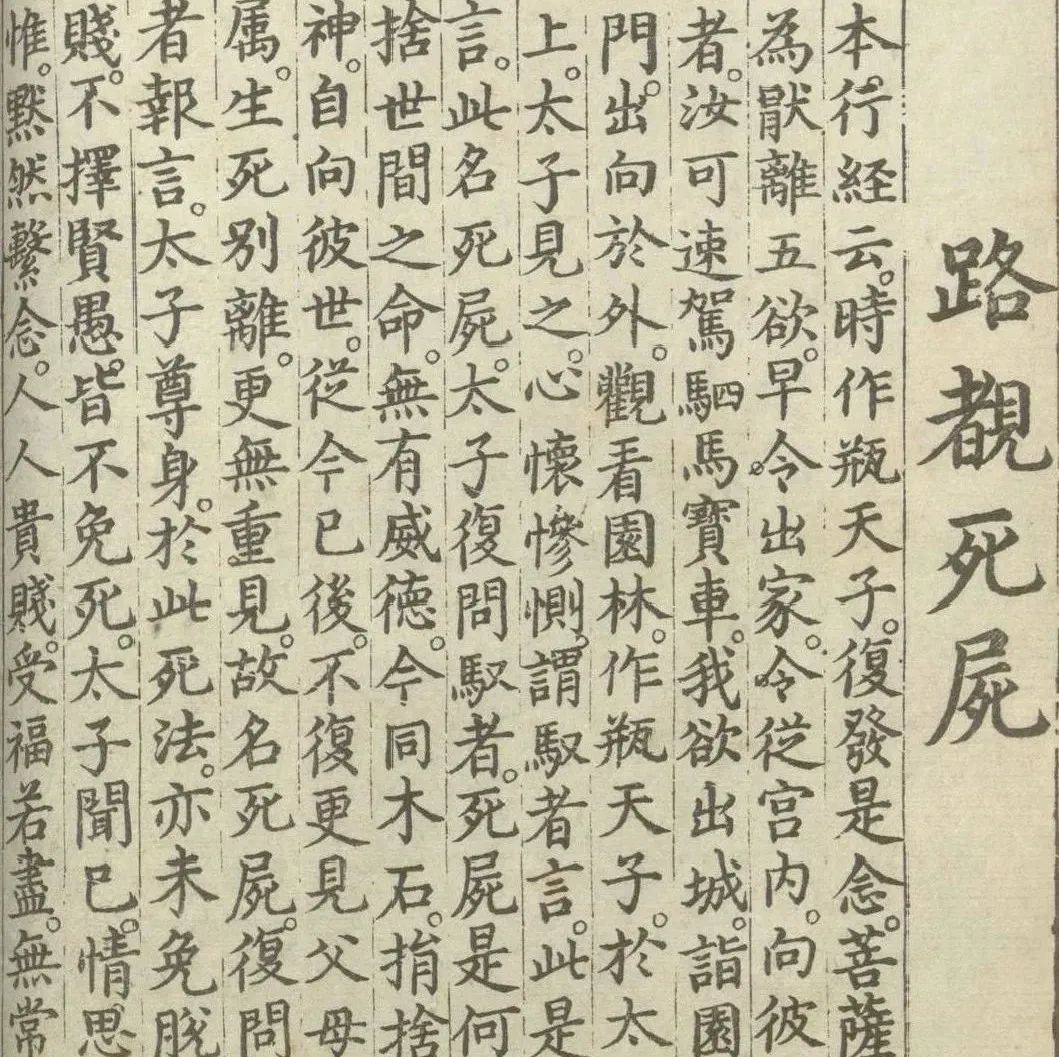 路覩死屍
本行経云。時作瓶天子。復發是念。菩薩
為厭離五欲。早令出家。令從宮内。向彼
者。汝可速駕駟馬寶車。我欲出城。詣園
門。出向於外。觀看園林。作瓶天子。於太
上。太子見之。心懷慘惻。謂馭者言。此是
言。此名死屍。太子復問馭者。死屍是何
捨世間之命。無有威德。今同木石。捐捨
神。自向彼世。從今已後。不復更見父母
属。生死別離。更無重見。故名死屍。復問
者報言。太子尊身。於此死法。亦未免脫
賤。不擇賢愚。皆不免死。太子聞已。情思
惟。黙然繫念。人人貴賤。受福若盡。無常